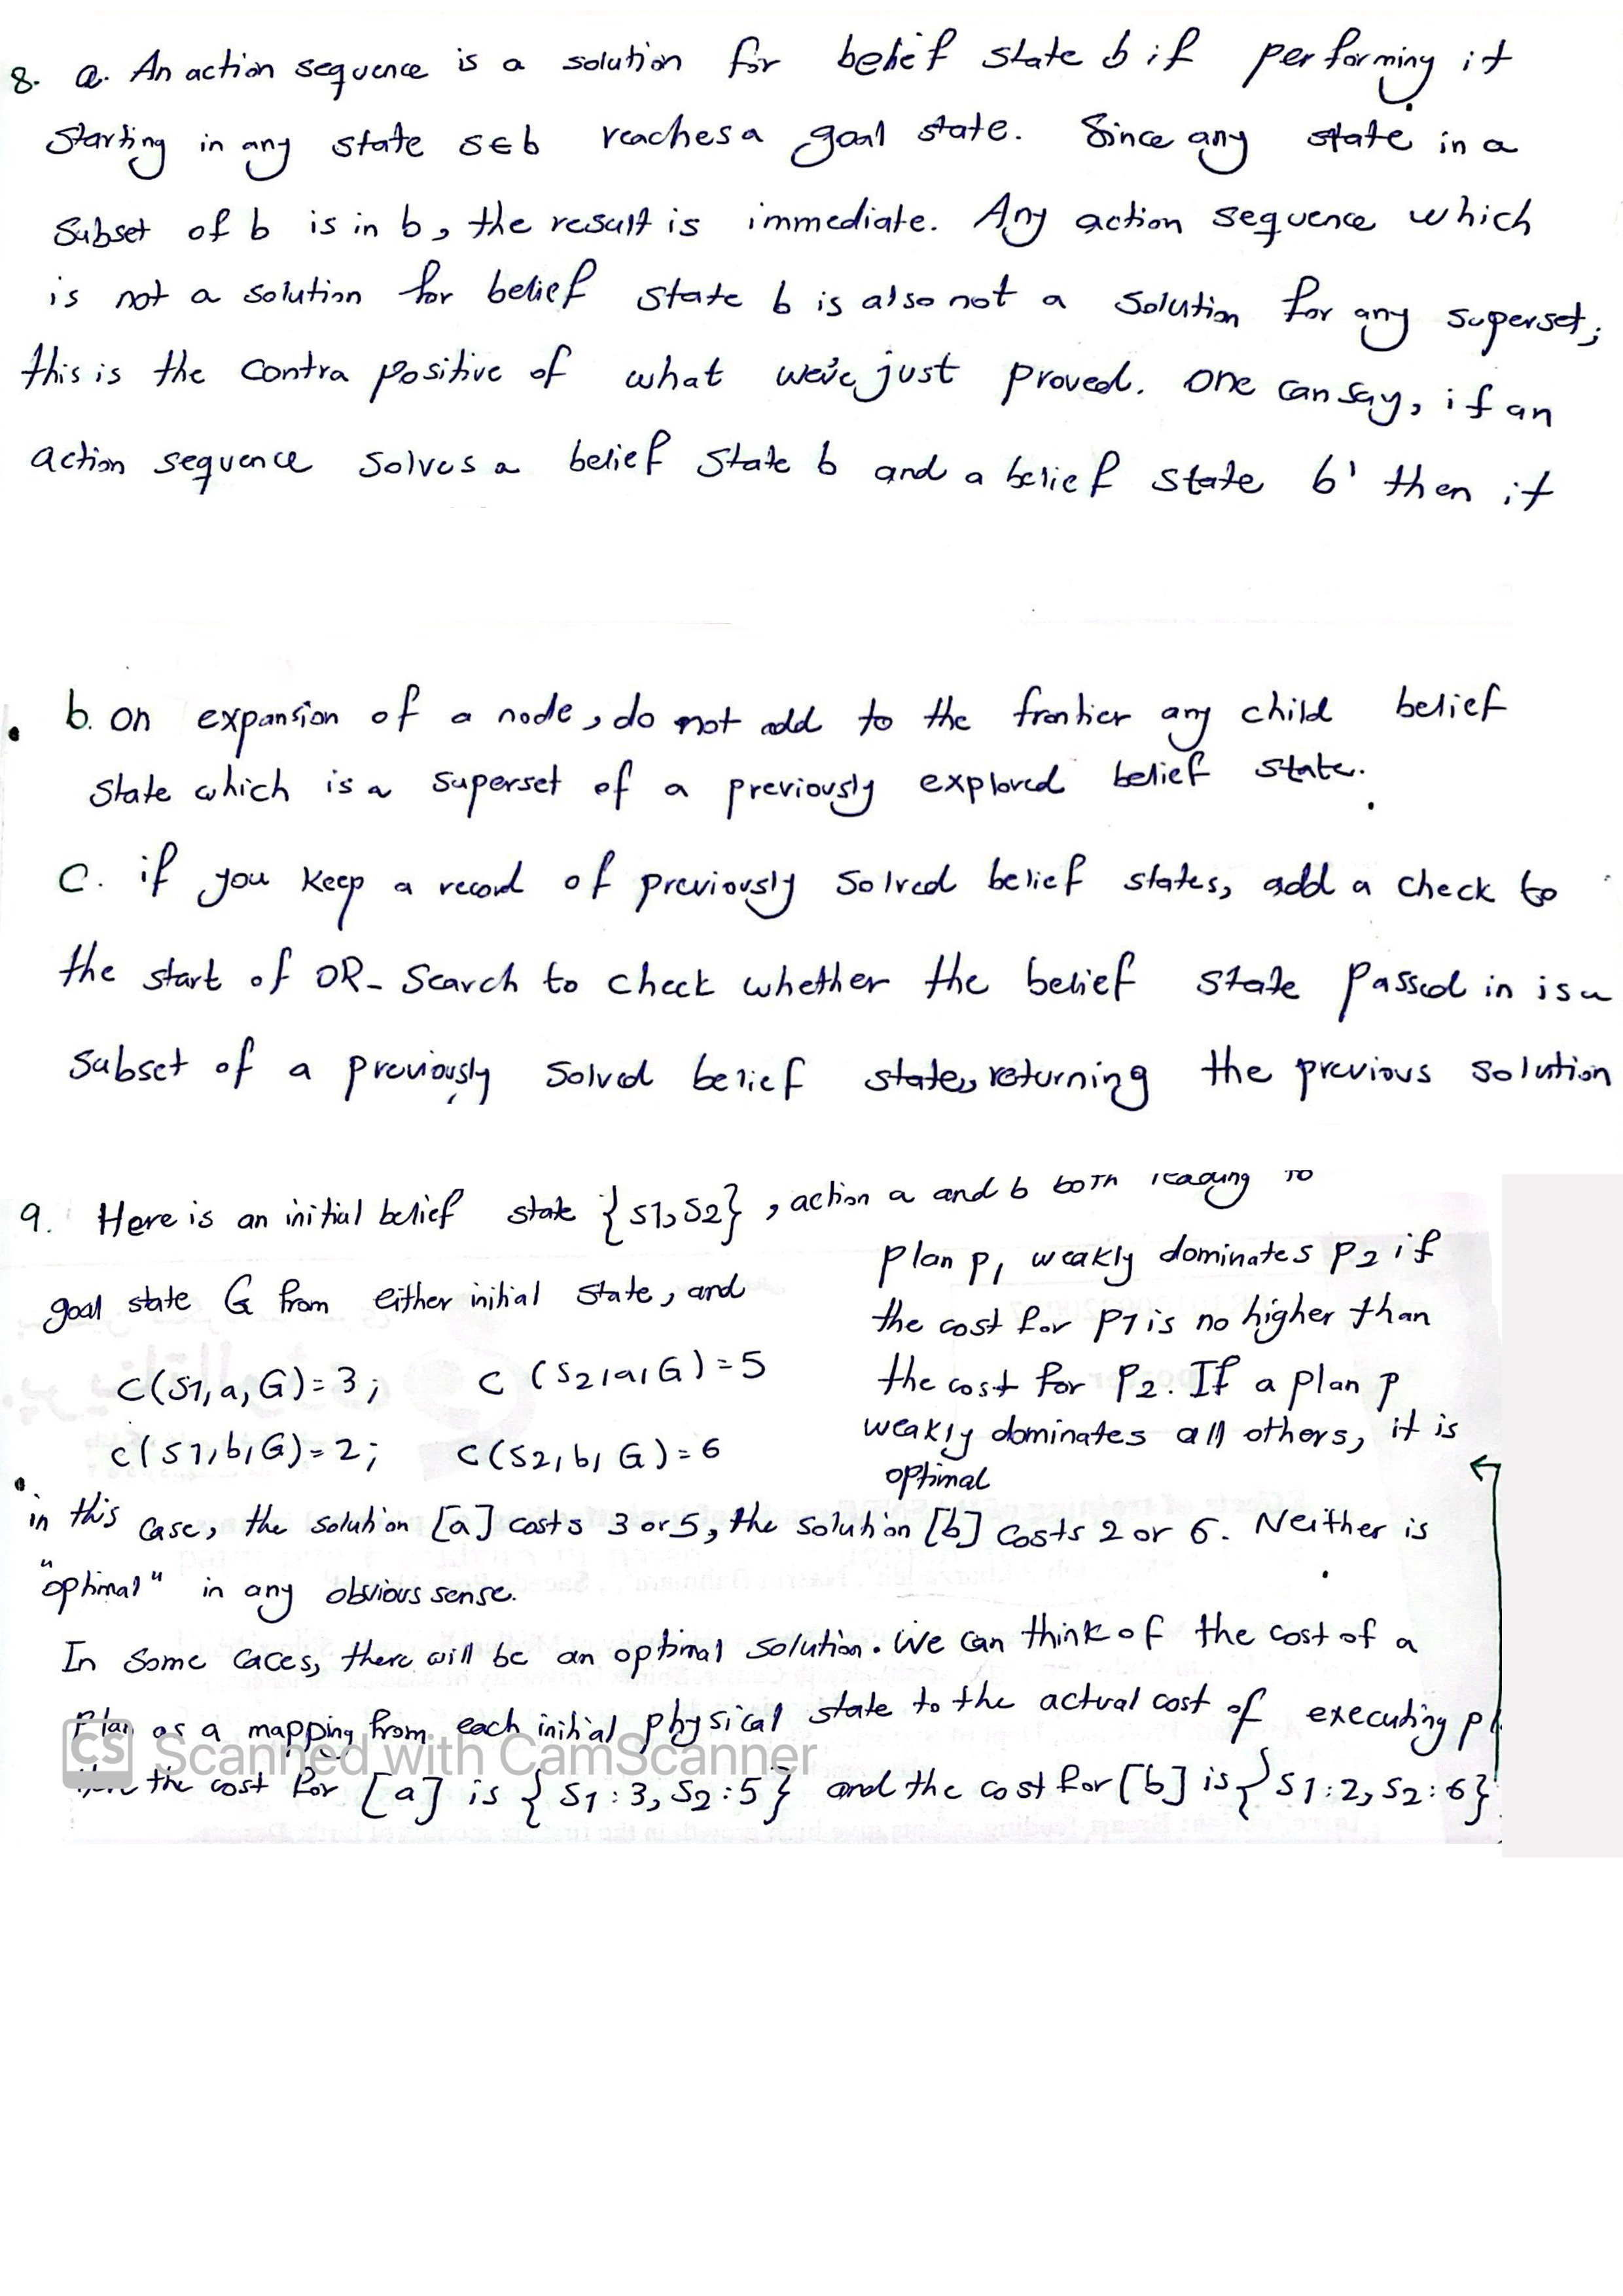 8. a. An action sequence is a solution for belief state b if performing it
starting in any state s∈b reaches a goal state. Since any state in a
subset of b is in b, the result is immediate. Any action sequence which
is not a solution for belief state b is also not a solution for any superset;
this is the contra positive of what we've just proved. One can say, if an
action sequence solves a belief state b and a belief state b' then it
b. on expansion of a node, do not add to the frontier any child belief
state which is a superset of a previously explored belief state.
c. if you keep a record of previously solved belief states, add a check to
the start of OR-Search to check whether the belief state passed in is a
subset of a previously solved belief state, returning the previous solution
9. Here is an initial belief state {S1,S2}, action a and b both leading to
goal state G from either initial state, and
C(S1,a,G)=3; C(S2,a,G)=5
C(S1,b,G)=2; C(S2,b,G)=6
plan p1 weakly dominates p2 if
the cost for p1 is no higher than
the cost for P2. If a plan p
weakly dominates all others, it is
optimal
in this case, the solution [a] costs 3 or 5, the solution [b] costs 2 or 6. Neither is
"optimal" in any obvious sense.
In some caces, there will be an optimal solution. We can think of the cost of a
plan as a mapping from each initial physical state to the actual cost of executing pl
the cost for [a] is {S1:3, S2:5} and the cost for [b] is {S1:2, S2:6}
CS Scanned with CamScanner